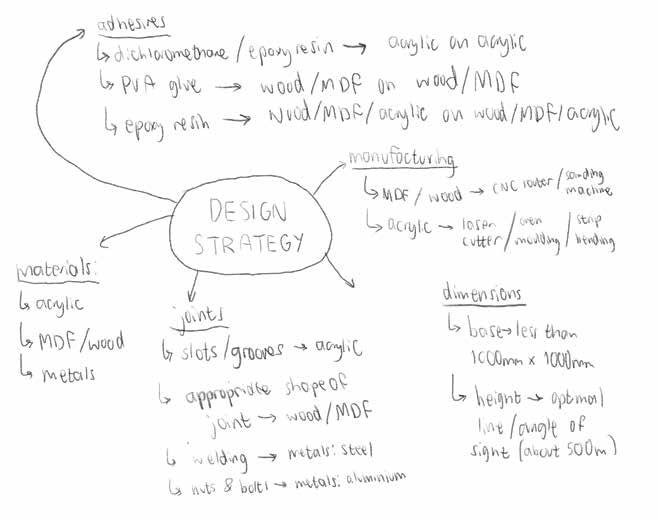 adhesives
↳ dichloromethane / epoxy resin → acrylic on acrylic
↳ PVA glue → wood/MDF on wood/MDF
↳ epoxy resin → wood/MDF/acrylic on wood/MDF/acrylic
DESIGN
STRATEGY
manufacturing
↳ MDF / wood → CNC router / sanding machine
↳ acrylic → laser cutter / oven moulding / strip bending
materials:
↳ acrylic
↳ MDF/wood
↳ metals
joints
↳ slots / grooves → acrylic
↳ appropriate shape of
joint → wood / MDF
↳ welding → metals: steel
↳ nuts & bolts → metals: aluminium
dimensions
↳ base → less than
1000mm x 1000mm
↳ height → optimal
line / angle of
sight (about 500m)